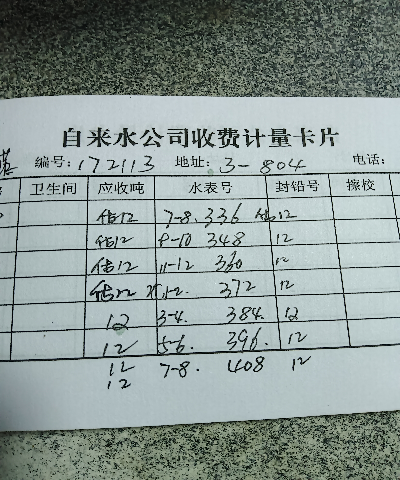 自来水公司收费计量卡片
编号:172113 地址:3-804 电话:
卫生间 应收吨 水表号 封铅号 擦校
估12 7-8. 336 估12
估12 9-10 348 12
估12 11-12 360 12
估12 1-2. 372 12
12 3-4. 384. 12
12 5-6. 396. 12
12 7-8. 408 12
12